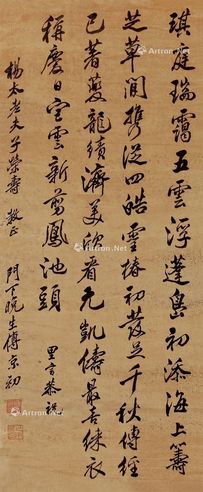 琪庭瑞靄五雲浮蓬島初添海上籌
芝草閒携從四皓靈椿初發足千秋傳經
已著夔龍績濟美欣看元凱儔最喜綵衣
稱慶日宮雲新剪鳳池頭
里言恭祝
楊太老夫子榮壽 教正
門下晚生傅京初
Artron.Net
Artron.Net
Artron.Net
Artron.Net